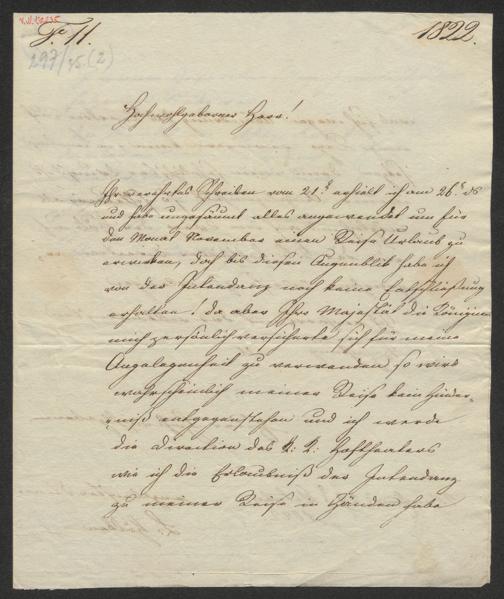 F. 11.
1822.
297/25.(2)
Hochwohlgeborner Herr!
Ihr verehrtes Schreiben vom 21t erhielt ich am 26t ds
und habe ungesäumt alles angewendet um für
den Monat November einen Reise Urlaub zu
erwirken, doch bis diesen Augenblik habe ich
von der Intendanz noch keine Entschließung
erhalten! Da aber Ihre Majestät die Königin
mich persönlich versicherte sich für meine
Angelegenheit zu verwenden so wird
wahrscheinlich meiner Reise kein Hinder
niß entgegenstehen und ich werde
die Direction des k: k: Hoftheaters
wie ich die Erlaubniß der Intendanz
zu meiner Reise in Händen habe